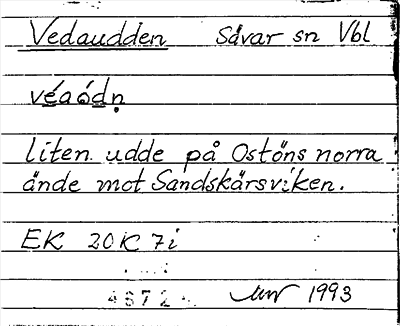 Vedaudden Sävar sn Vbl
véaòdn̥
liten udde på Ostöns norra
ände mot Sandskärsviken.
EK 20K 7i
4672 1993